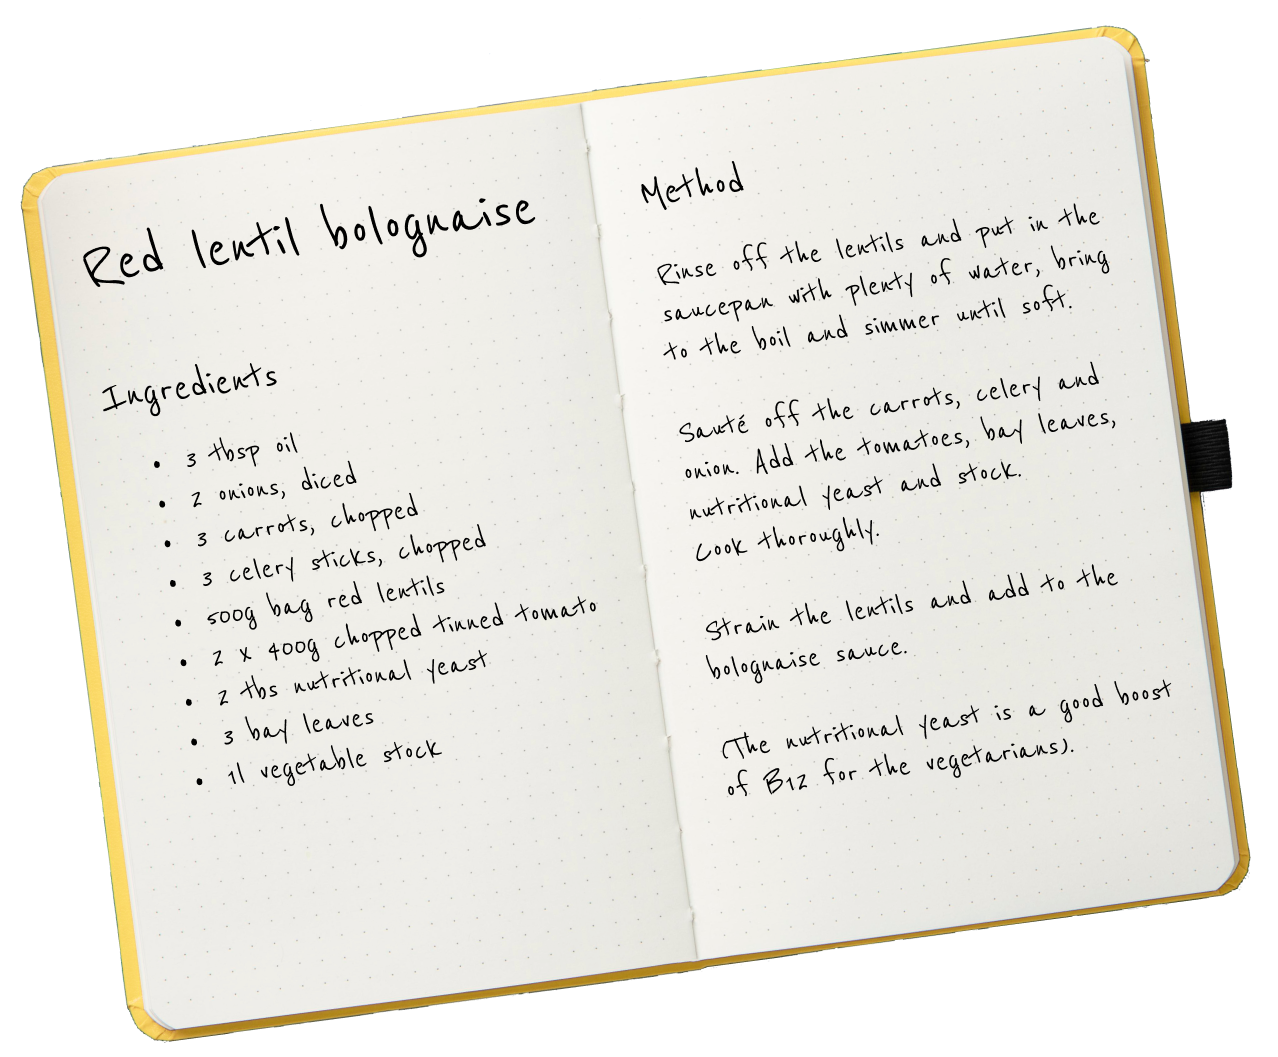 Red lentil bolognaise
Ingredients
• 3 tbsp oil
• 2 onions, diced
• 3 carrots, chopped
• 3 celery sticks, chopped
• 500g bag red lentils
• 2 x 400g chopped tinned tomato
• 2 tbs nutritional yeast
• 3 bay leaves
• 1l vegetable stock
Method
Rinse off the lentils and put in the
saucepan with plenty of water, bring
to the boil and simmer until soft.
Sauté off the carrots, celery and
onion. Add the tomatoes, bay leaves,
nutritional yeast and stock.
Cook thoroughly.
Strain the lentils and add to the
bolognaise sauce.
(The nutritional yeast is a good boost
of B12 for the vegetarians).